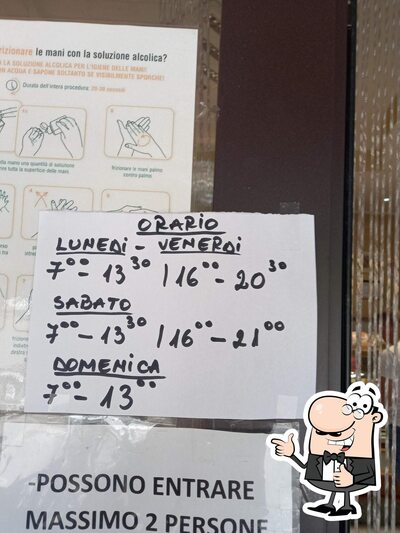 rizionare le mani con la soluzione alcolica?
LA SOLUZIONE ALCOLICA PER L'IGIENE DELLE MANI!
ON ACQUA E SAPONE SOLTANTO SE VISIBILMENTE SPORCHE!
Durata dell'intera procedura: 20-30 secondi
nella mano una quantità di soluzione
frizionare le mani palmo
ente tutta la superficie delle mani.
contro palmo
ORARIO
LUNEDI - VENERDI
7⁰⁰ - 13³⁰ / 16⁰⁰ - 20³⁰
SABATO
7⁰⁰ - 13³⁰ / 16⁰⁰ - 21⁰⁰
DOMENICA
7⁰⁰ - 13⁰⁰
-POSSONO ENTRARE
MASSIMO 2 PERSONE